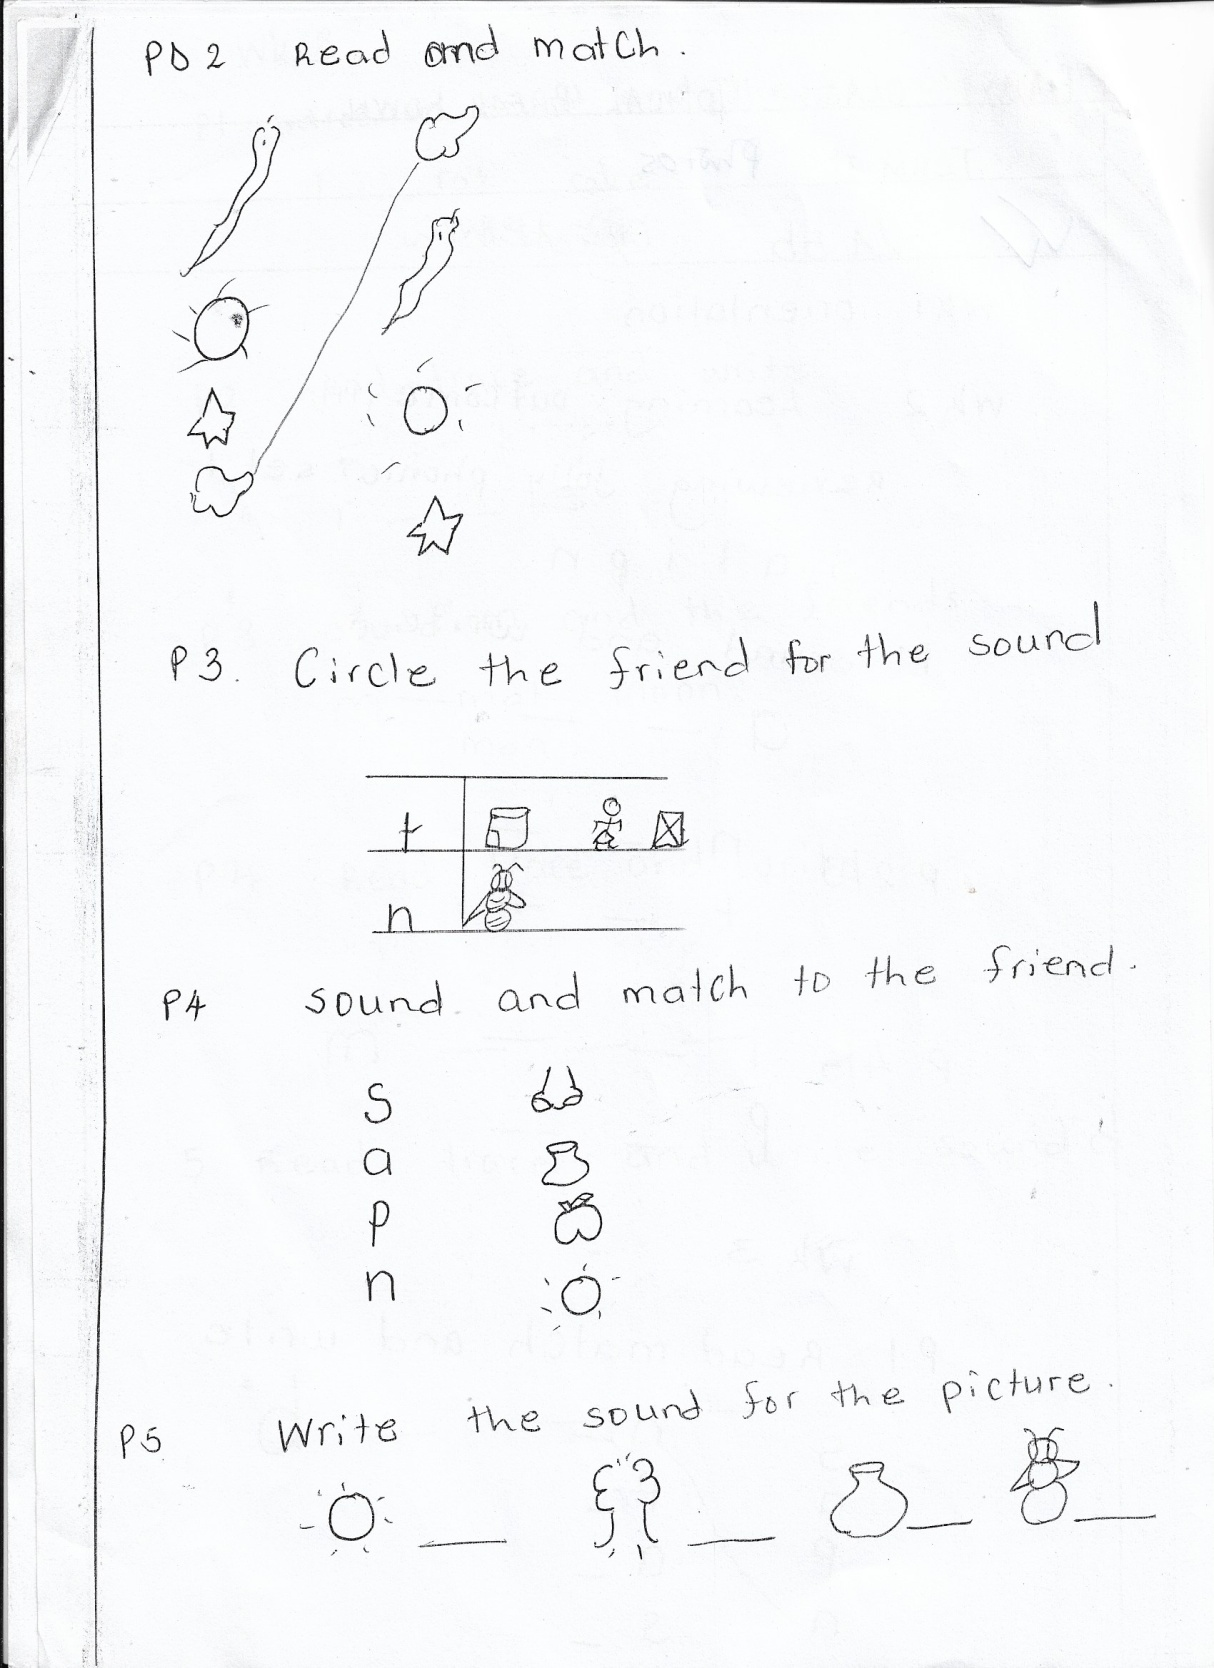 PD 2 Read and match.
P 3. Circle the friend for the sound
t
n
P4 sound and match to the friend.
s
a
p
n
P5 Write the sound for the picture.